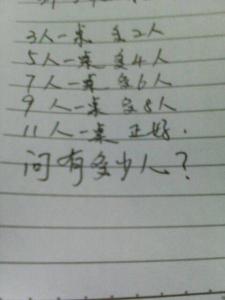 3人一桌 多2人
5人一桌 多4人
7人一桌 多6人
9人一桌 多8人
11人一桌 正好.
问有多少人?